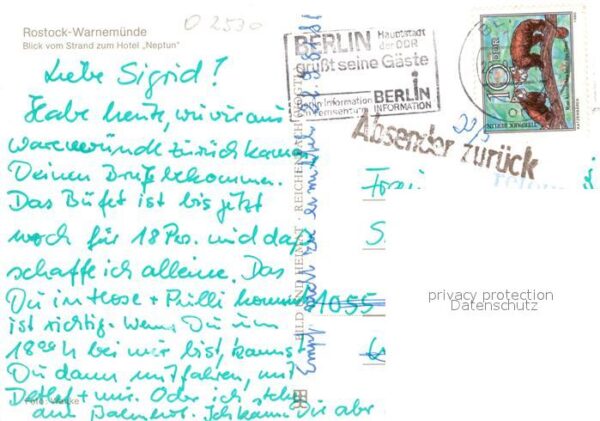 O 2530
Rostock-Warnemünde
Blick vom Strand zum Hotel „Neptun"
Liebe Sigrid!
Habe heute, wie wir aus
Warnemünde zurück kamen
Deinen Brief bekommen.
Das Büfet ist bis jetzt
noch für 18 Pers. und das
schaffe ich alleine. Das
Du in Hose + Pulli kommst
ist richtig. Wenn Du um
18 00 h bei mir bist, kannst
Du dann mitfahren, mit
Detlef + mir. Oder ich stehe
am Bahnhof. Ich kann Dir aber
BILD UND HEIMAT · REICHENBACH
Empf. nicht zu ermitteln
BERLIN Hauptstadt
der DDR
grüßt seine Gäste
Berlin Information
BERLIN
INFORMATION
10
DDR
TIERPARK BERLIN
KATZENBÄREN
Absender zurück
22/9
1055
privacy protection
Datenschutz